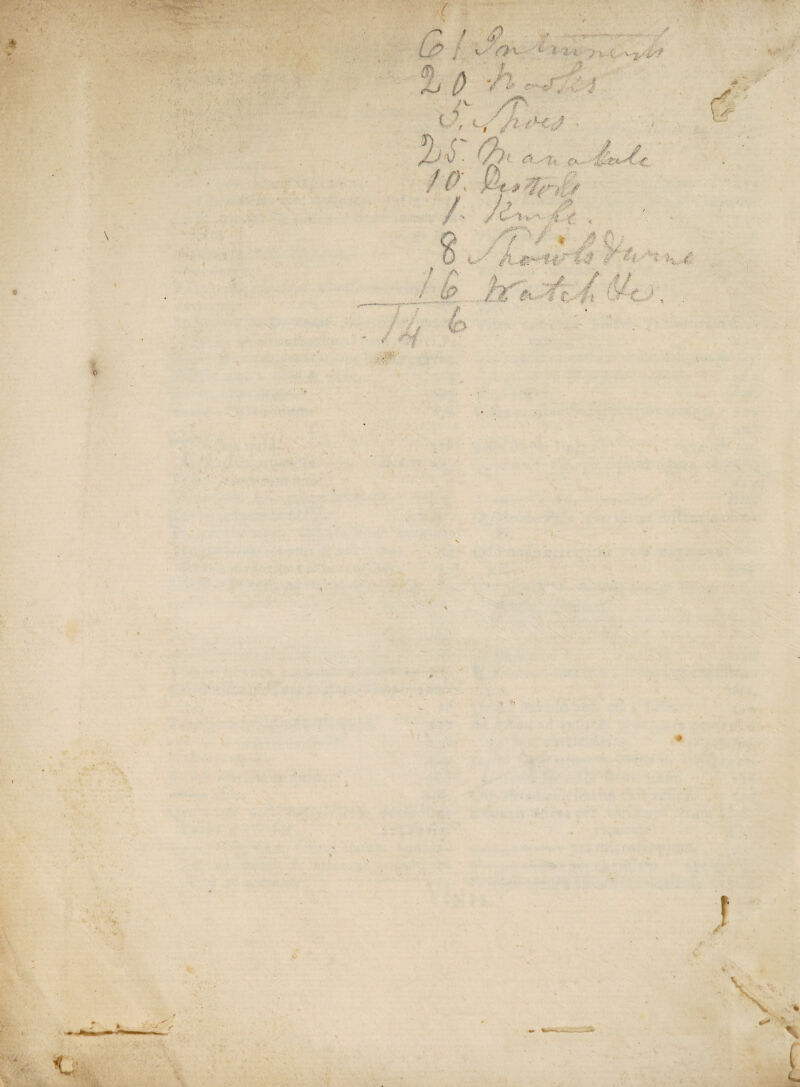 61 Instruments
20 Books
5. Shoes
25. Manatale
10. Pistols
1. Knife.
8 Showls &
16 Watch &c.
146